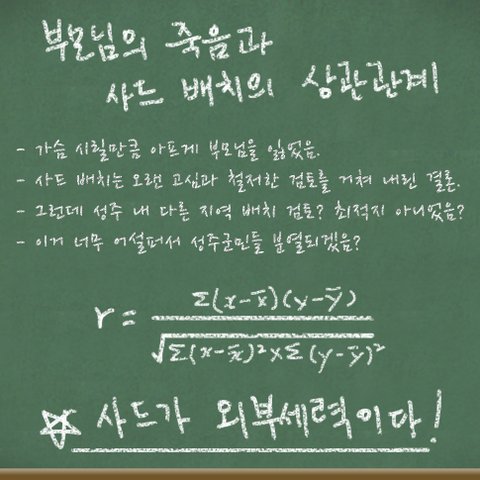 부모님의 죽음과
사드 배치의 상관관계
- 가슴 시릴만큼 아프게 부모님을 잃었음.
- 사드 배치는 오랜 고심과 철저한 검토를 거쳐 내린 결론.
- 그런데 성주 내 다른 지역 배치 검토? 최적지 아니었음?
- 이거 너무 어설퍼서 성주군민들 분열되겠음?
r = Σ(x-x̄)(y-ȳ) / √Σ(x-x̄)²x Σ(y-ȳ)²
☆ 사드가 외부세력이다!